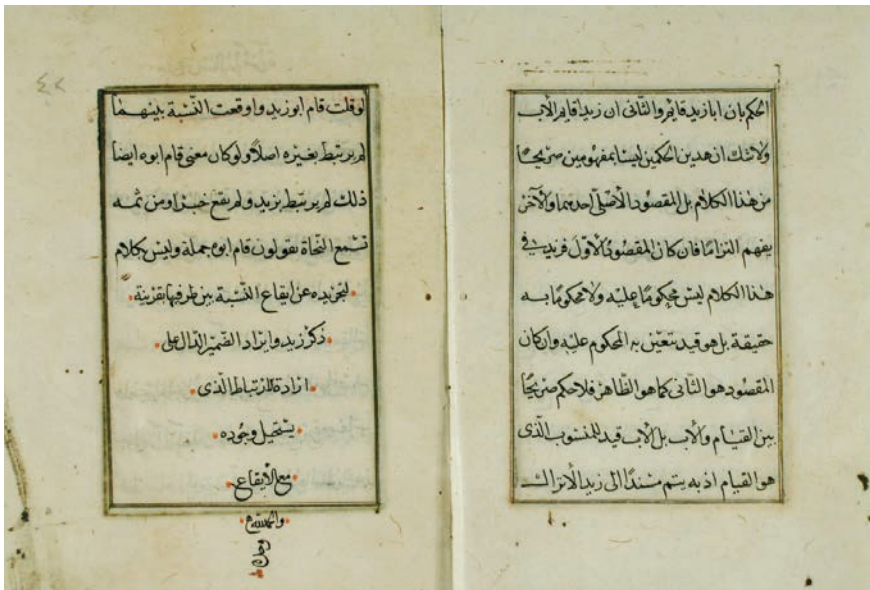 الحكم بان ابا زيد قايم والثانى ان زيدا قايم الاب
ولا شك ان هذين الحكمين ليسا بمفهومين صريحا
من هذا الكلام بل المقصود الاصلى احدهما والآخر
يفهم التزاما فان كان المقصود الاول فزيد فى
هذا الكلام ليس محكوما عليه ولا محكوما به
حقيقة بل هو قيد يتعين به المحكوم عليه وان كان
المقصود هو الثانى كما هو الظاهر فلا حكم صريحا
بين القيام والاب بل الاب قيد للمنسوب الذى
هو القيام اذ به يتم مسندا الى زيد الا تراك
لو قلت قام ابو زيد واوقعت النسبة بينهما
لم يرتبط بغيره اصلا ولو كان معنى قام ابوه ايضا
ذلك لم يرتبط بزيد ولم يقع خبرا ومن ثمه
تسمع النحاة يقولون قام ابوه جملة وليس بكلام
لتجريده عن ايقاع النسبة بين طرفيها بقرينة
ذكر زيد وايراد الضمير الدال على
ارادة الارتباط الذى
يستحيل وجوده
مع الايقاع
وحده